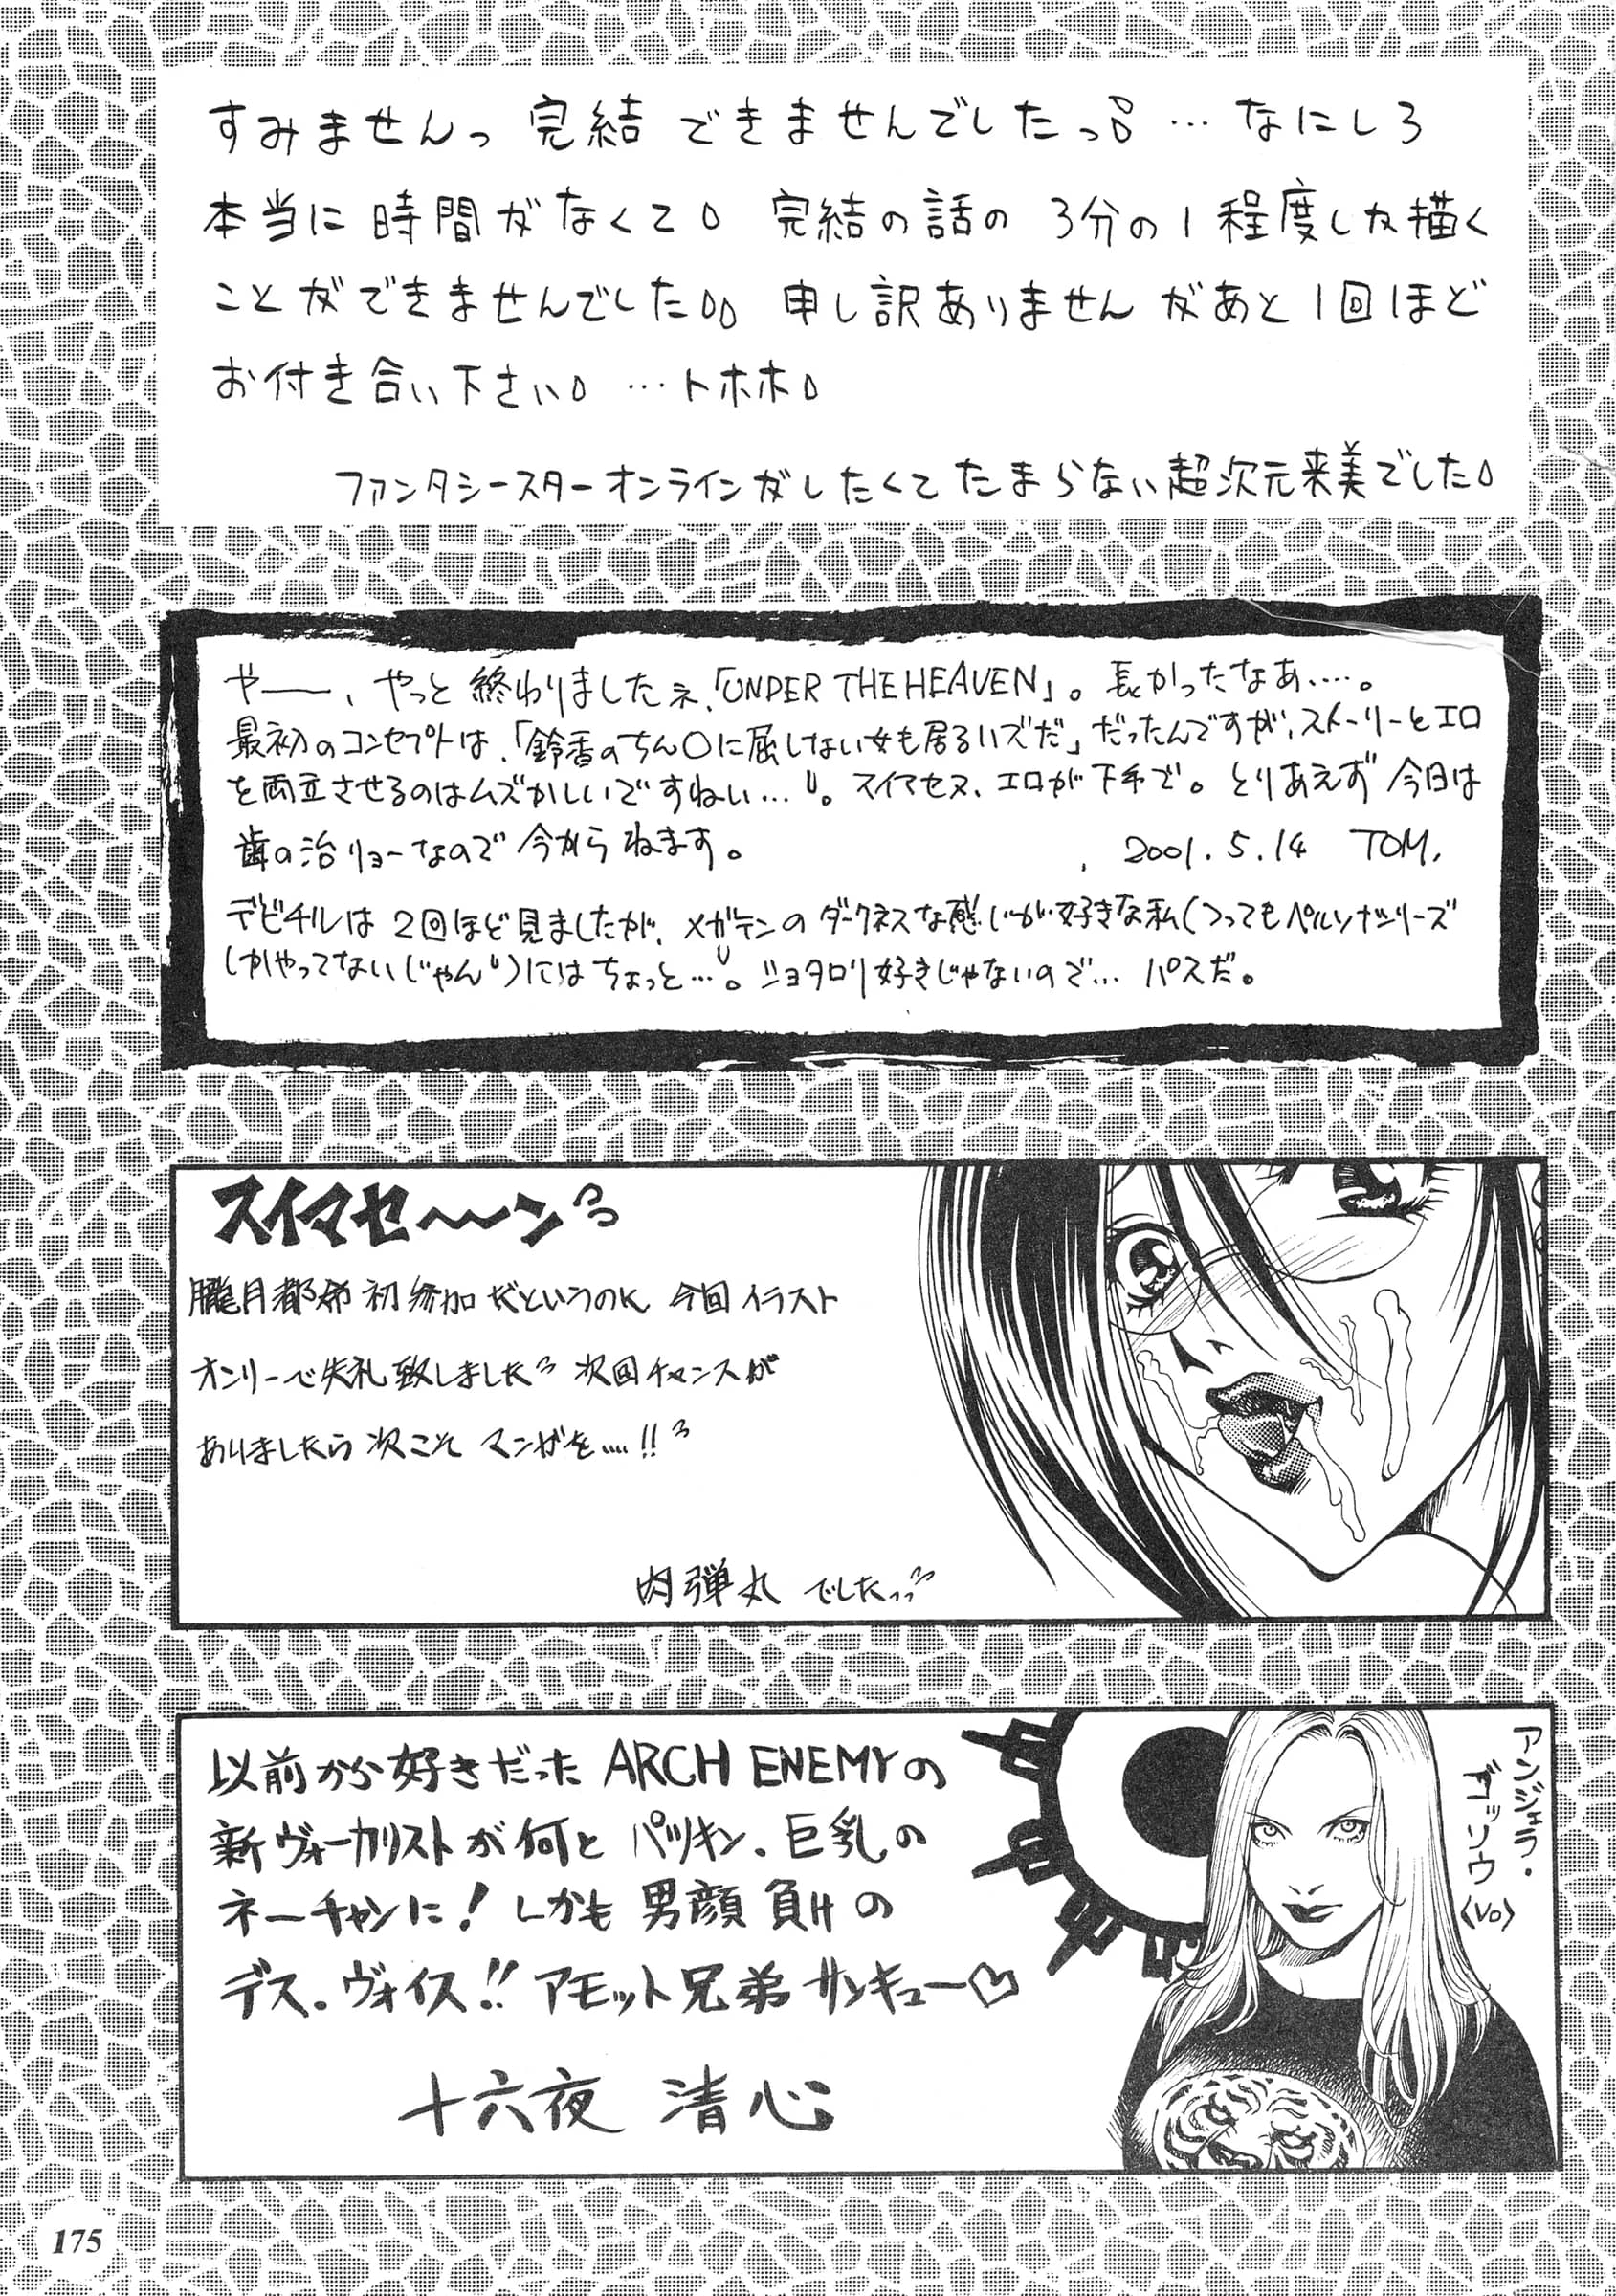 すみませんっ 完結 できませんでしたっ … なにしろ
本当に 時間がなくて。 完結の話の 3分の1程度しか描く
ことができませんでした。 申し訳ありませんがあと1回ほど
お付き合い下さい。 …トホホ。
ファンタシースターオンラインがしたくてたまらない超次元来美でした。
やー、やっと終わりましたネ、「UNDER THE HEAVEN」。長かったなあ……。
最初のコンセプトは、「鈴香のちん〇に屈しない女も居るハズだ」だったんですが、ストーリーとエロ
を両立させるのはムズかしいですねい…。スイマセヌ、エロが下手で。とりあえず今日は
歯の治リョーなので今からねます。
2001.5.14 TOM.
デビチルは2回ほど見ましたが、メガテンのダークネスな感じが好きな私(つってもペルソナシリーズ
しかやってないじゃん)にはちょっと…。ショタロリ好きじゃないので… パスだ。
スイマセ〜〜ンっ
朧月都希初参加だというのに 今回イラスト
オンリーで失礼致しました 次回チャンスが
ありましたら次こそ マンガを……!!
肉弾丸 でしたっっ
以前から好きだった ARCH ENEMYの
新ヴォーカリストが何と パツキン、巨乳の
ネーチャンに! しかも 男顔負けの
デス・ヴォイス!! アモット兄弟サンキュー♡
十六夜 清心
アンジェラ・
ゴッソウ
〈VO〉
175